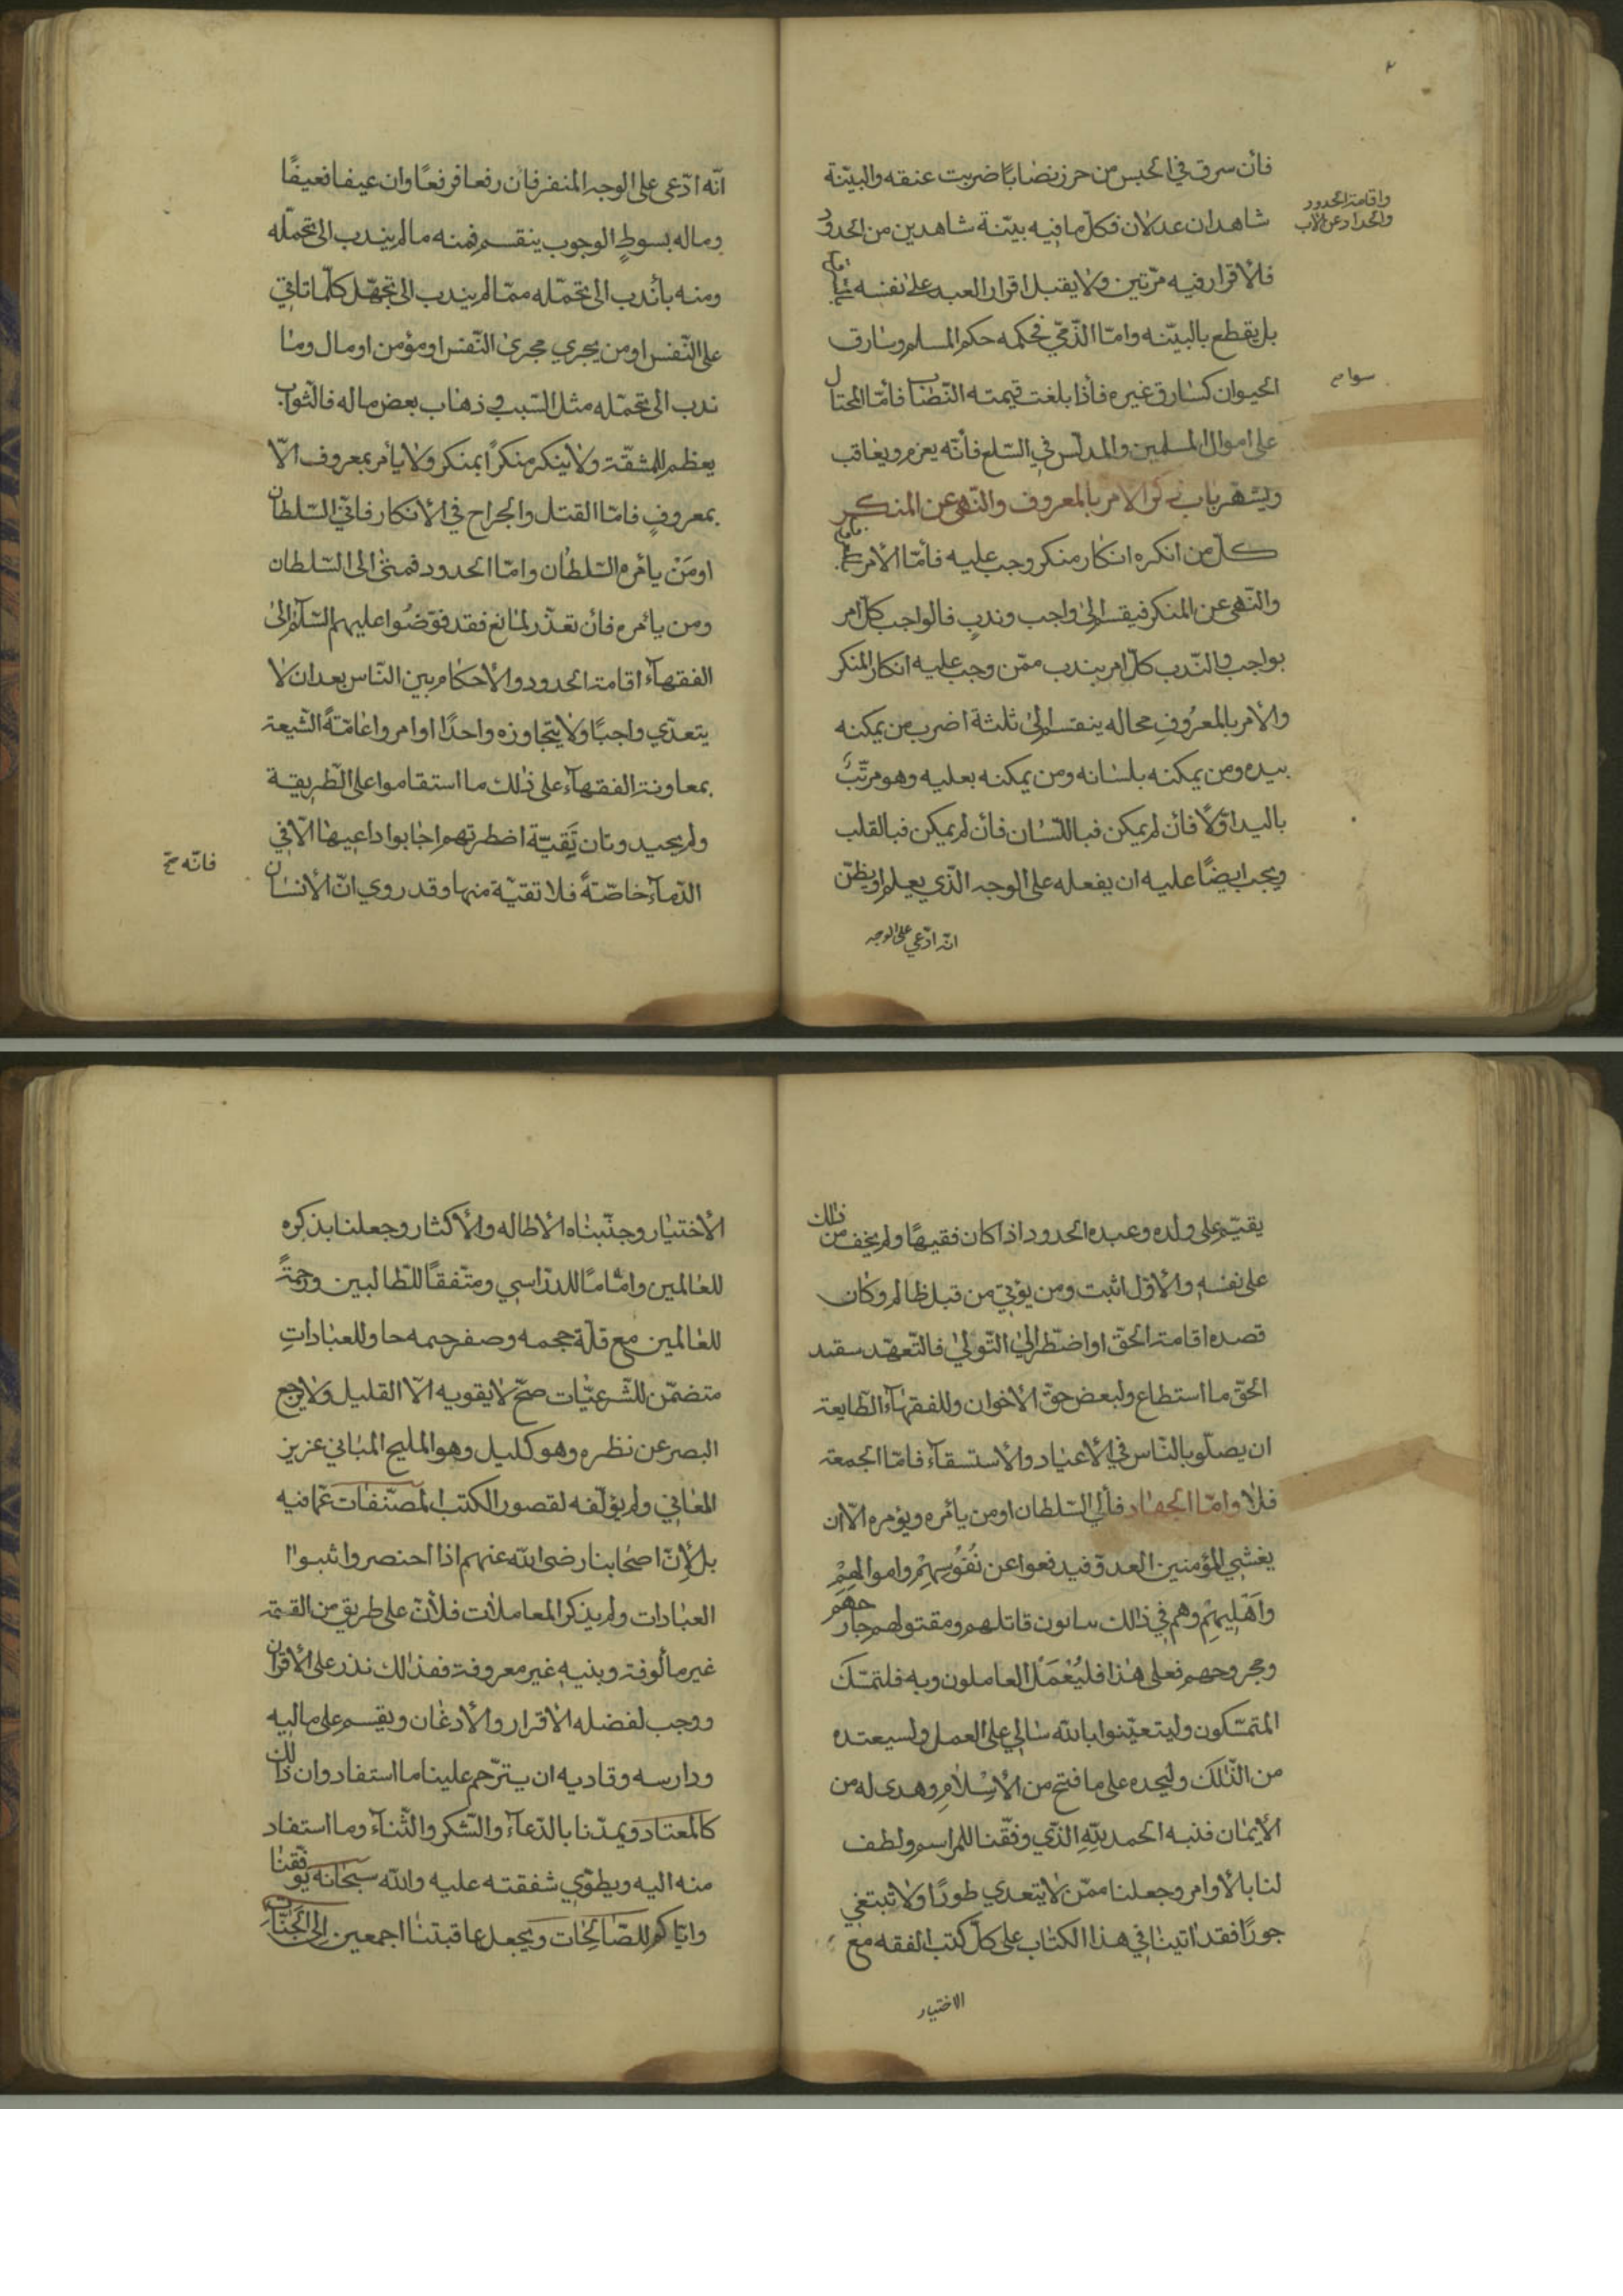 فأن سرق في الحبس من حرز نضابًا ضربت عنقه والبيّنة
شاهدان عدلان فكلّ ما فيه بيّنة شاهدين من الحدود
فلأقرار فيه مرّتين ولا يقبل اقرار العبد على نفسه
بل يقطع بالبيّنه وامّا الذّمّي فحكمه حكم المسلم وسارق
الحيوان كسارق غيره فأذا بلغت قيمته النّصاب فأمّا المحتال
على اموال المسلمين والمدلّس في السّلع فأنّه يعزم ويغاقب
ويشهر باب ذكر الامر بالمعروف والنّهى عن المنكر
كلّ من انكره انكار منكر وجب عليه فأمّا الأمر
والنّهى عن المنكر فيقسم إلى واجب وندب فالواجب كلّ امر
بواجب والنّدب كلّ امر بندب ممّن وجب عليه انكار المنكر
والأمر بالمعرُوفِ محاله ينقسم إلى ثلثة اضرب من يمكنه
بيده ومن يمكنه بلسانه ومن يمكنه بعليه وهو مرتّبٌ
باليد اوّلًا فأن لم يمكن فباللّسان فأن لم يمكن فبالقلب
ويجب ايضًا عليه ان يفعله على الوجه الّذي يعلم او يظنّ
انّه ادّعي على الوجه
واقامة الحدود
سوا م
انّه ادّعى على الوجه المنفر فأن رفعا فرفعًا وان عيفا فعيفًا
وماله بسوطٍ الوجوب ينقسم فمنه مالم يندب الى تحمّله
ومنه بأندب الى تحمّله ممّا لم يندب الى تجهّل كلّما تاتي
على النّفس او من يجري مجرى النّفس او مؤمن او مال وما
ندب الى تحمّله مثل السّبب في ذهاب بعض ماله فالثّواب
يعظم للمشقّة ولا ينكر منكرًا بمنكر ولا يأمر بمعروف الّا
بمعروفٍ فامّا القتل والجراح في الأنكار فاني السّلطان
او مَنْ يأمره السّلطان وامّا الحدود فمثى الى السّلطان
ومن يأمره فأن تعذّر لمانع فقد فوّضُوا عليهم السّلام إلى
الفقهآء اقامة الحدود والأحكام بين النّاس بعد ان لا
يتعدّي واجبًا ولا يتجاوزه واحدًا اوامر واعامّةً الشّيعة
بمعاونة الفقهآء على ذلك ما استقاموا على الطّريقة
ولم يحيدوتان تَقيّة اضطرتهم اجابوا داعيها الّا في
الدّمآء خاصّةً فلا تقيّة منها وقد روي انّ الأنسان
فانّه خ
يقيّم على ولده وعبده الحدود اذا كان فقيهًا ولم يخف من ذلك
على نفسه والأوّل اثبت ومن يؤتي من قبل ظالم وكان
قصده اقامة الحقّ او اضطر إلى التّولي فالتّعهّد
الحقّ ما استطاع ولبعض حقّ الأخوان وللفقهآء الطّايعة
ان يصلّو بالنّاس في الأعياد والأستسقآء فامّا الجمعة
فلا وامّا الجهاد فألي السّلطان او من يأمره ويؤمره الّا ان
يغشي المؤمنين العدوّ فيدفعوا عن نُفُوسِهِمْ واموالهِمْ
وأَهْلِيهِمْ وهم في ذلك قاتلهم ومقتولهم جار حهم
ومجروحهم فعلى هذا فليُعْمَلُ العاملون وبه فلتمسّك
المتمسّكون وليتعيّنوا بالله على العمل
من الذّلك وليحده على ما فتح من الأِسْلامِ وهدى له من
الأيمان فنبه الحمد للّهِ الّذي وفّقنا للمراسم ولطف
لنا بالأوامر وجعلنا ممّن لا يتعدي طورًا ولا تبتغي
جورًا فقد اتينا في هذا الكتاب على كلّ كتب الفقه مع
الاختيار
الأختيار وجنّبناه الأطاله والأكثار وجعلنا بذكره
للعالمين وامامًا للدّراسي ومتّفقًا للطّالبين ورحمةً
للعالمين مع قلّة حجمه وصفر جمه حاو للعبادات
متضمّن للشّرعيّات صحّ لا يقويه الّا القليل ولا يرجع
البصر عن نظره وهو كليل وهو المليح المباني عزيز
المعاني ولم يؤلّفه لقصور الكتب المصنّفات عمّا فيه
بل لأنّ اصحابنا رضى الله عنهم اذا احنصروا ثبوا
العبادات ولم يذكر المعاملات فلأنّ على طريق من القسمة
غير مألوفة وبنيه غير معروفة ففذلك نذر على الأقران
ووجب لفضله الأقرار والأدغان ويقسم على ماليه
ودارسه وقاديه ان يترّحم علينا ما استفاد وان ذلك
كالمعتاد ويمدّنا بالدّعآء والشّكر والثّنآء وما استفاد
منه اليه ويطوّي شفقته عليه والله سبحانه يوفّقنا
وايّاكم للصّالحات ويجعل عاقبتنا اجمعين إلى الجنّات